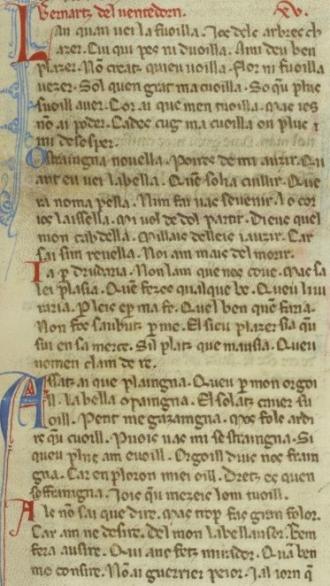 Bernartz del uentedorn. XV.
Lan quan uei la fuoilla. Jos dels arbres ch
azer. Cui qui pes ni duoilla. A mi deu ben
plazer. Nō crezatz quieu uoilla. Flor ni fuoilla
uezer. Sol quen grat ma cuoilla. So qu plus
fuoill auer. Cor ai que men tuoilla. Mas ies
nō ai poder. Cades cug ma cuoilla on plus
mi desesper.
Ostraingna nouella. Podetz de mi auzir. Qu
ant eu uei la bella. Quem solia cuillir. Que
ra noma pella. Nim fai uas se uenir. Lo cor
ios laissella. Mi uol de dol partir. Dieus quel
mon cabdella. Mi llais de lleis iauzir. Car
sai sim reuella. Noi am mais del morir.
Ia p drudaria. Non lam que nos coue. Mas sa
lei plasia. Quem fezes qualque be. Queu liu
raria. P leis e p ma fe. Quel ben quem faria.
Non fos saubutz p me. El sieu plazer sia qu
sui en sa merce. Sil platz que mausia. Queu
nomen clam de re.
Assatz ai que plaingna. Queu p mon orgoi
ll. La bella opaingna. El solatz cauer su
oill. Petit me gazaingna. Mos fols ardi
re qū cuoill. Puois uas mi se straingna. Si
queu plus am cuoill. Orgoill dieus nos frain
gna. Car en ploron miei oill. Dretz es quem
soffraingna. Jois qū mezeis lom tuoill.
Als nō sai que dire. Mas trop fas gran folor.
Car am ne desire. Del mon la bellaisor. Ben
fera ausire. Qui anc fetz mirador. Quā ben
mo consire. Nō ai guerrier peior. Ia l iorn q